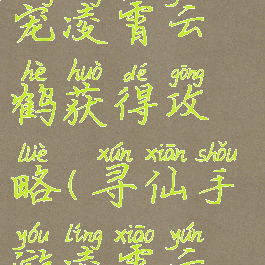 宠凌霄云
hè huò dé gōng
鹤获得攻
lüè xún xiān shǒu
略(寻仙手
yóu líng xiāo yún
游凌霄云